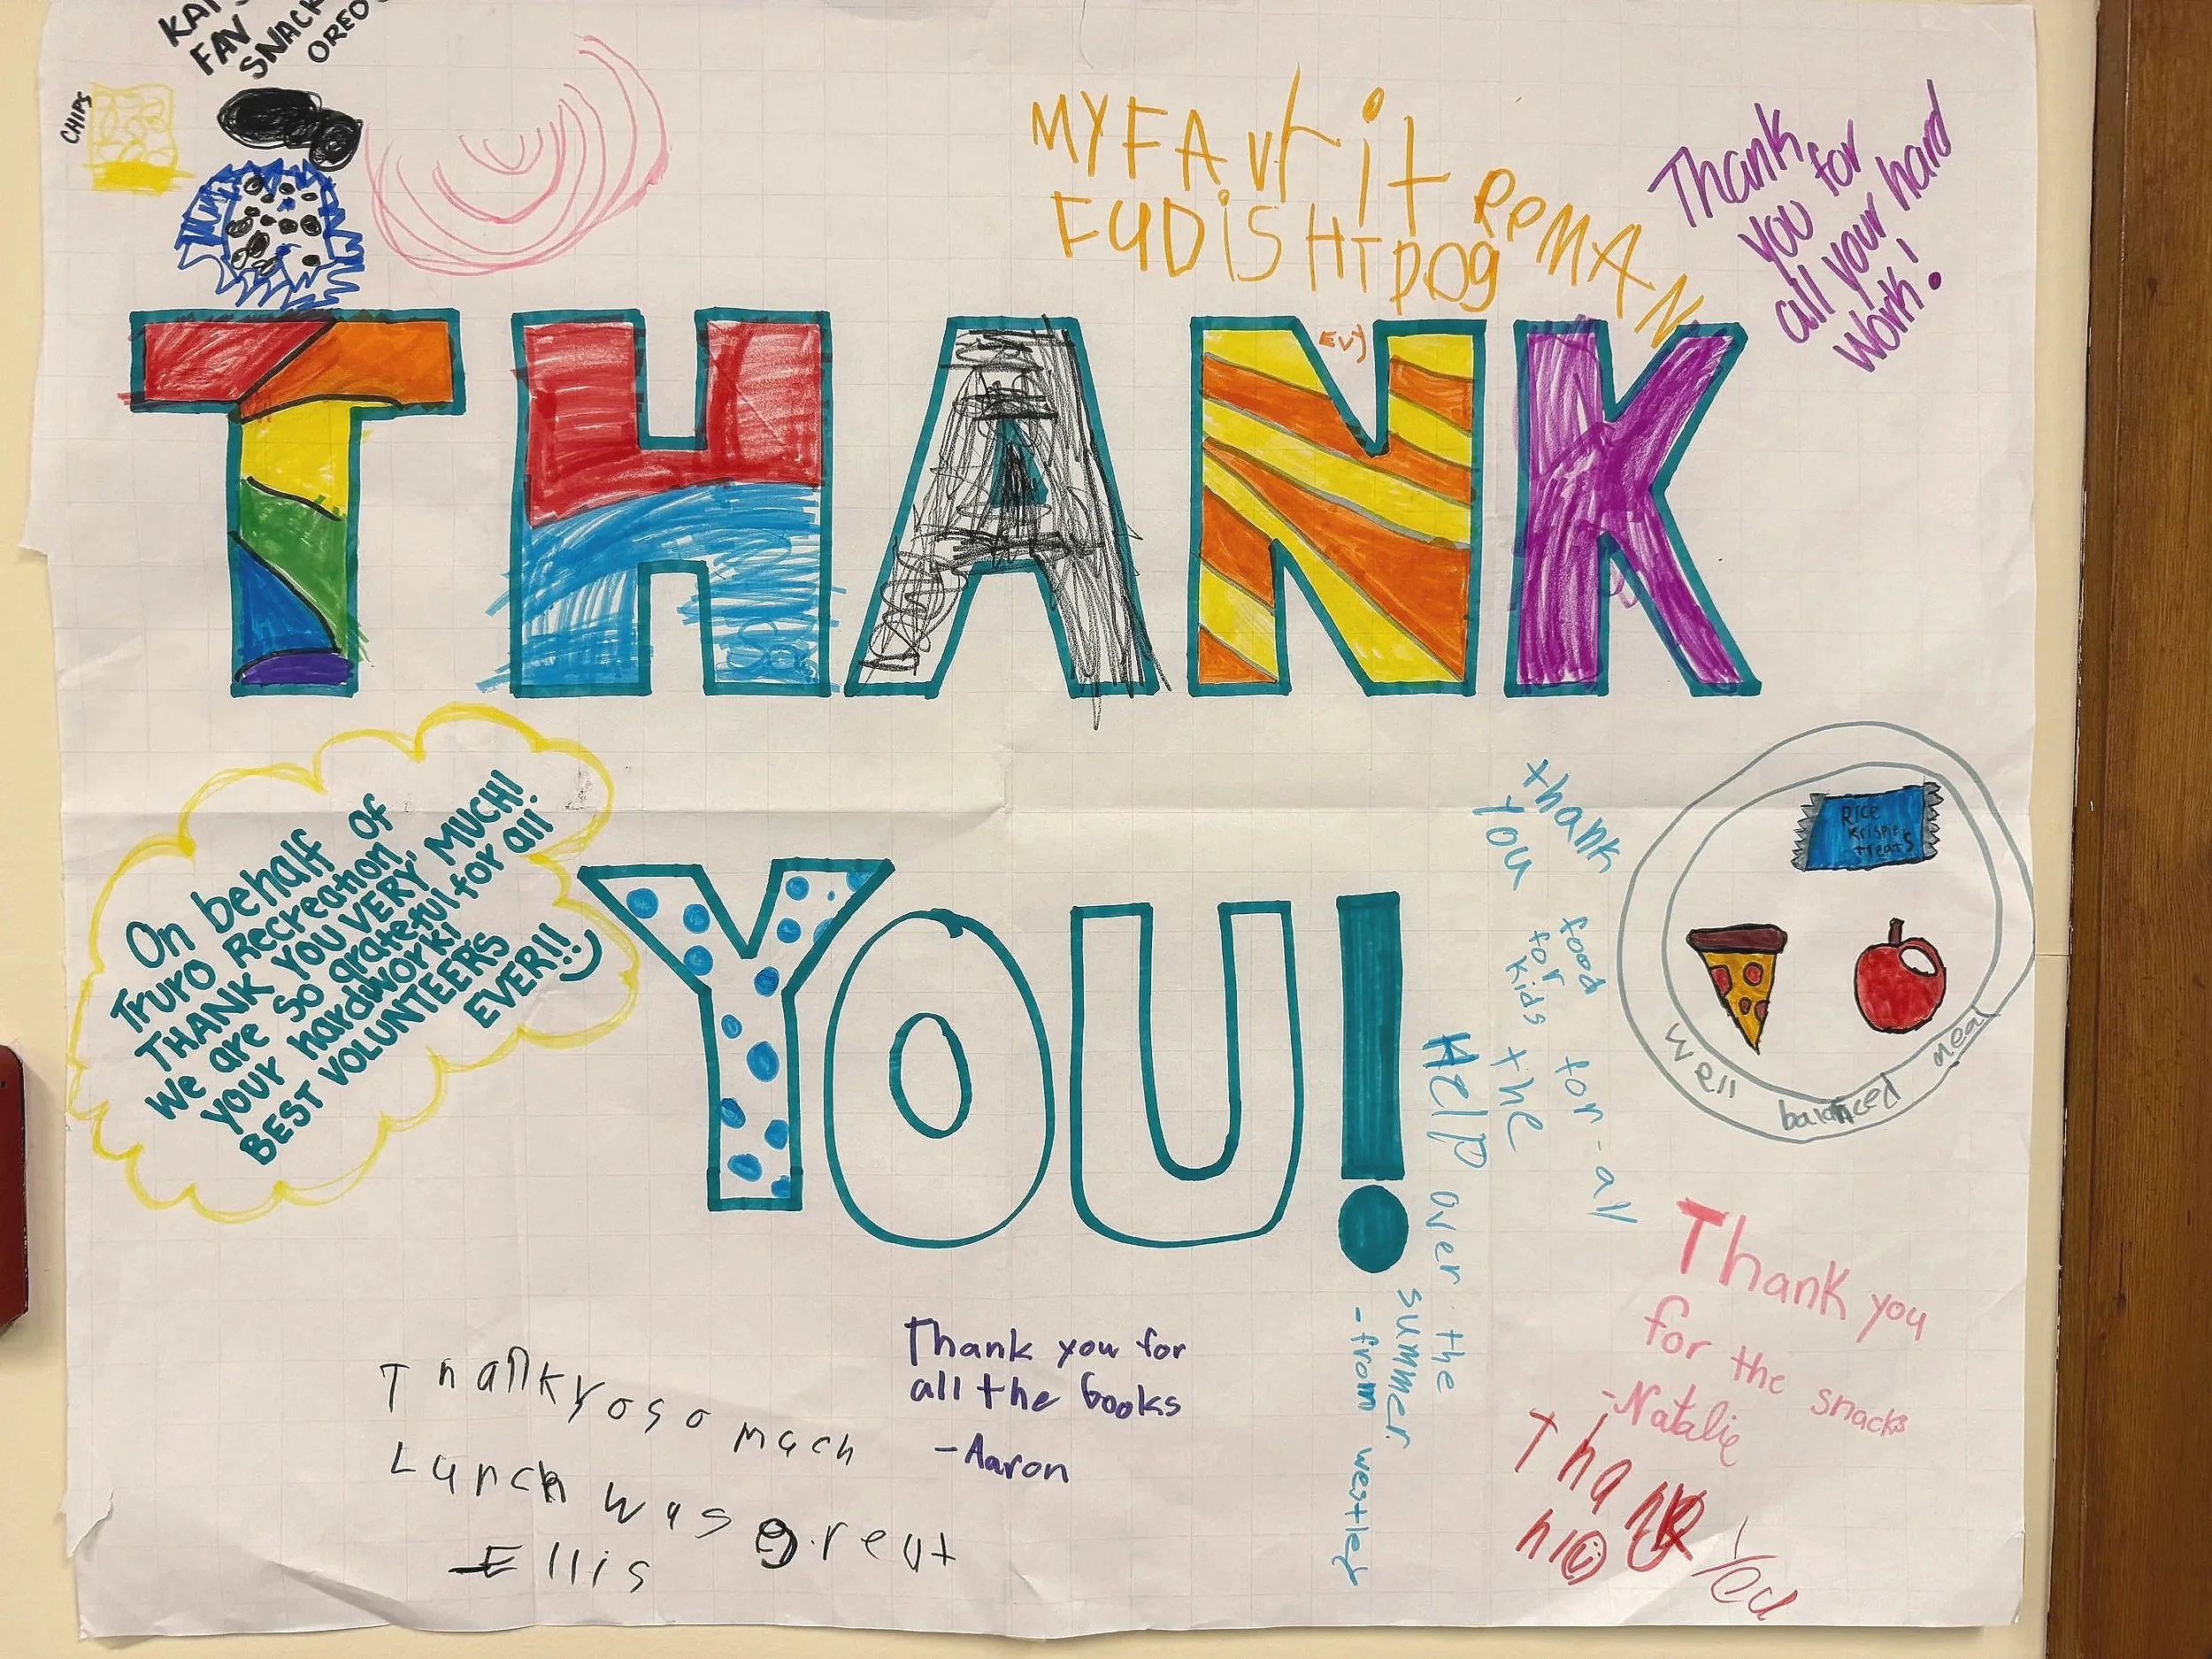 FAV
SNACK
OREO
CHIPS
MY FAVrit
FUD iS HT DOG
ReMAN
EVY
Thank
you for
all your hard
work!
THANK
YOU!
On behalf
Truro Recreation OF
THANK YOU VERY MUCH!
We are so grateful for all
your hardwork!
BEST VOLUNTEERS
EVER!!!
thank
you
food for-all
for
kids the
HElP over the
summer.
-from westley
Rice
Krispies
treats
Well balanced meal
Thank you
for the snacks
-Natalie
Thank You
hi
Thank you for
all the books
-Aaron
Thankyosomach
Lunch was great
-Ellis